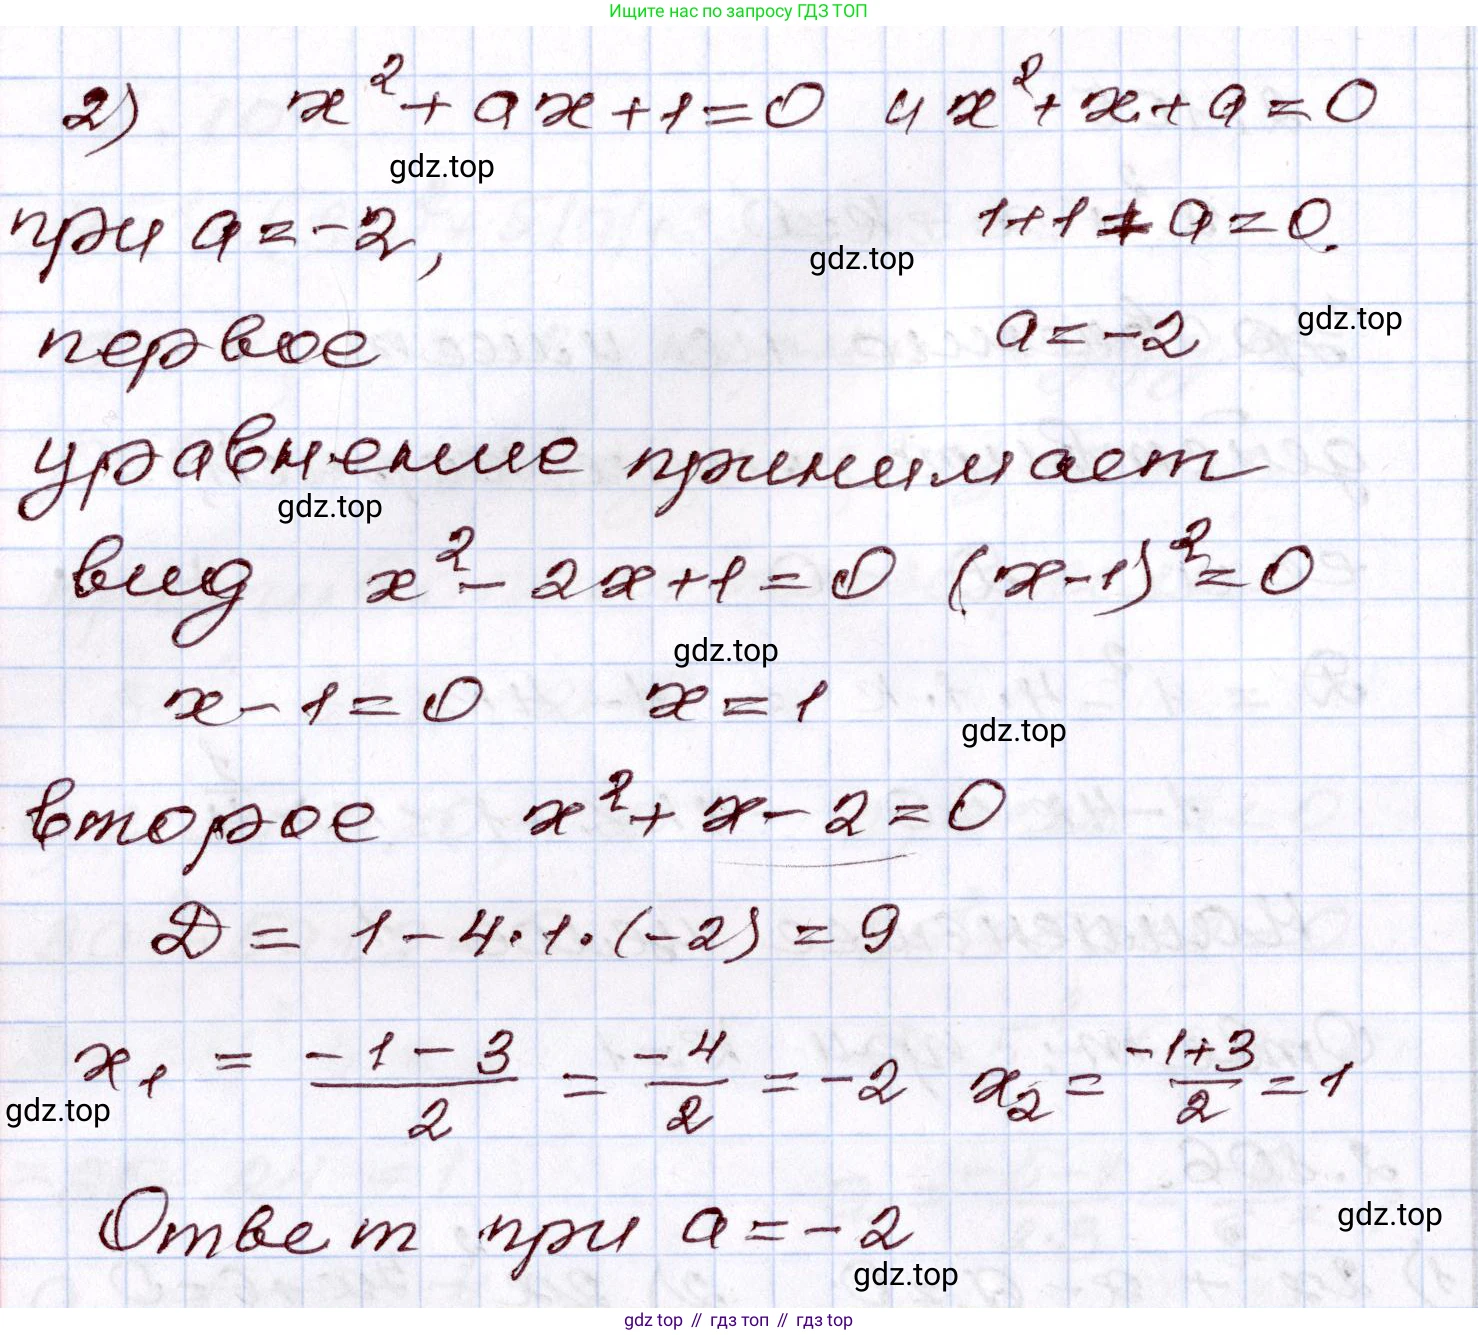 Ищите нас по запросу ГДЗ ТОП
2) x² + ax + 1 = 0 и x² + x + a = 0
gdz.top
при a = -2, 1 + 1 + a = 0.
gdz.top
первое a = -2
gdz.top
уравнение принимает
gdz.top
вид x² - 2x + 1 = 0 (x - 1)² = 0
gdz.top
x - 1 = 0 x = 1
gdz.top
второе x² + x - 2 = 0
D = 1 - 4·1·(-2) = 9
x₁ = (-1 - 3)/2 = -4/2 = -2 x₂ = (-1 + 3)/2 = 1
gdz.top
Ответ при a = -2
gdz.top
gdz.top
gdz top // гдз топ // гдз top